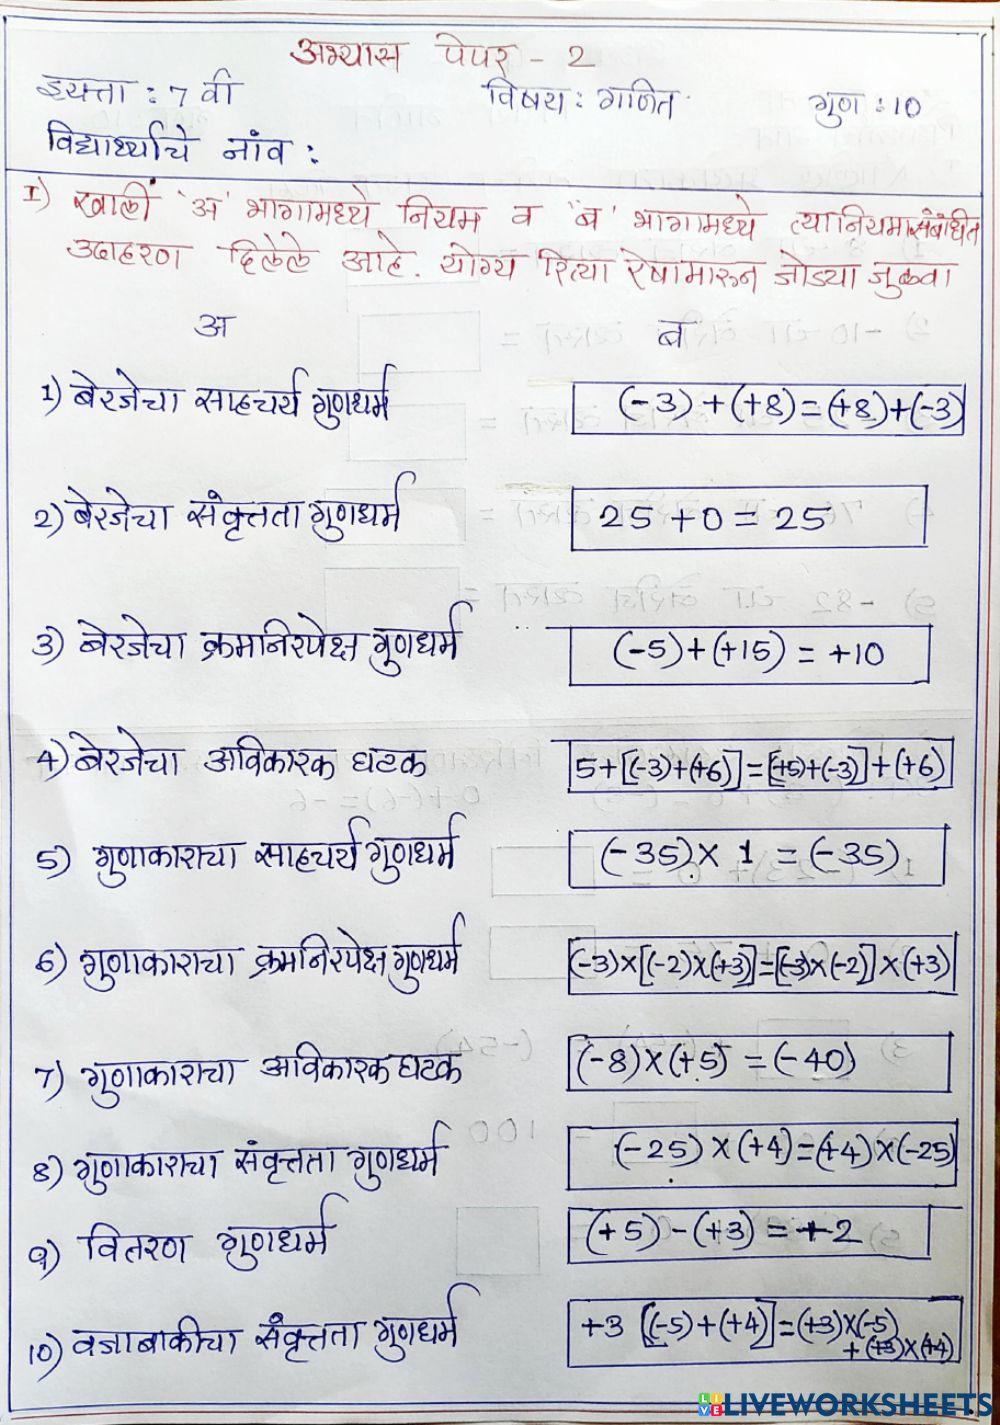 अभ्यास पेपर - 2
इयत्ता : 7 वी विषय : गणित गुण : 10
विद्यार्थ्याचे नांव :
I) खाली 'अ' भागामध्ये नियम व 'ब' भागामध्ये त्यानियमासंबंधीत
उदाहरण दिलेले आहे. योग्य रित्या रेषामारुन जोड्या जुळवा
अ ब
1) बेरजेचा साहचर्य गुणधर्म (-3)+(+8)=(+8)+(-3)
2) बेरजेचा संवृत्तता गुणधर्म 25+0=25
3) बेरजेचा क्रमनिरपेक्ष गुणधर्म (-5)+(+15) = +10
4) बेरजेचा अविकारक घटक 5+[(-3)+(+6)]=[(+5)+(-3)]+(+6)
5) गुणाकाराचा साहचर्य गुणधर्म (-35)× 1 = (-35)
6) गुणाकाराचा क्रमनिरपेक्ष गुणधर्म (-3)×[(-2)×(+3)]=[(-3)×(-2)]×(+3)
7) गुणाकाराचा अविकारक घटक (-8)×(+5) = (-40)
8) गुणाकाराचा संवृत्तता गुणधर्म (-25)×(+4)=(+4)×(-25)
9) वितरण गुणधर्म (+5)-(+3) = +2
10) वजाबाकीचा संवृत्तता गुणधर्म +3 [(-5)+(+4)]=(+3)×(-5)
+(+3)×(+4)
LIVEWORKSHEETS